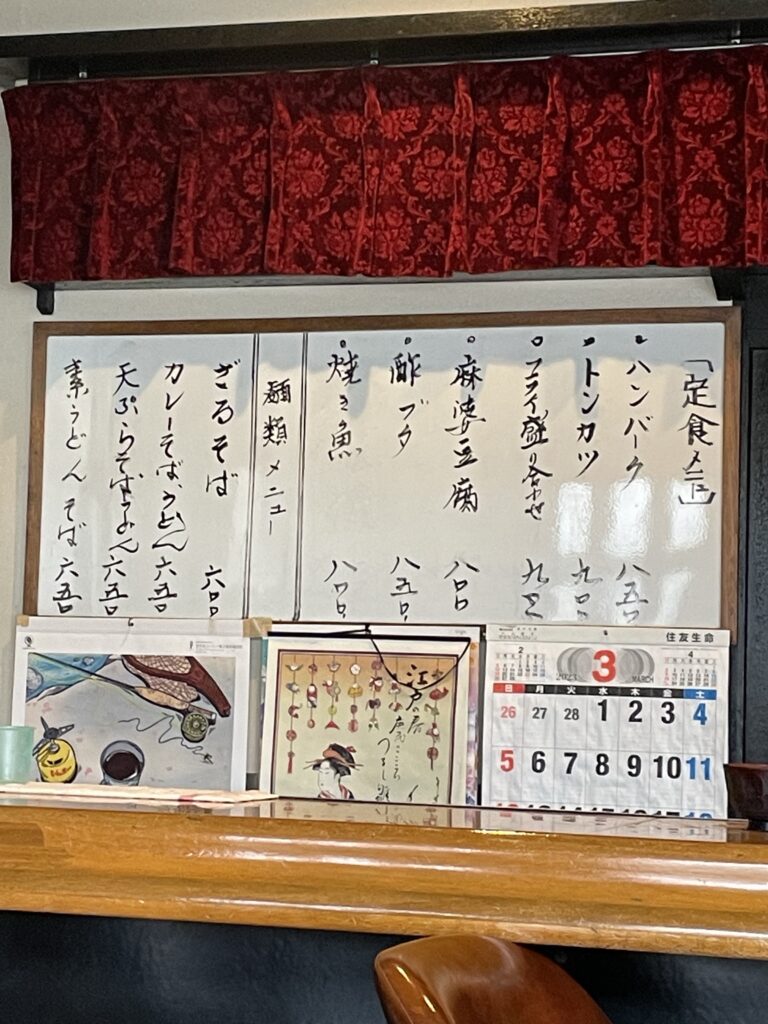 「定食メニュー」
ハンバーク 八五〇
トンカツ 九〇〇
フライ盛り合わせ 九〇〇
麻婆豆腐 八〇〇
酢ブタ 八五〇
焼き魚 八〇〇
麺類メニュー
ざるそば 六〇〇
カレーそば、うどん 六五〇
天ぷらそばうどん 六五〇
素うどん そば 六五〇
江戸の
つるし
住友生命
2
2023 3 MARCH
4
日 月 火 水 木 金 土
26 27 28 1 2 3 4
5 6 7 8 9 10 11